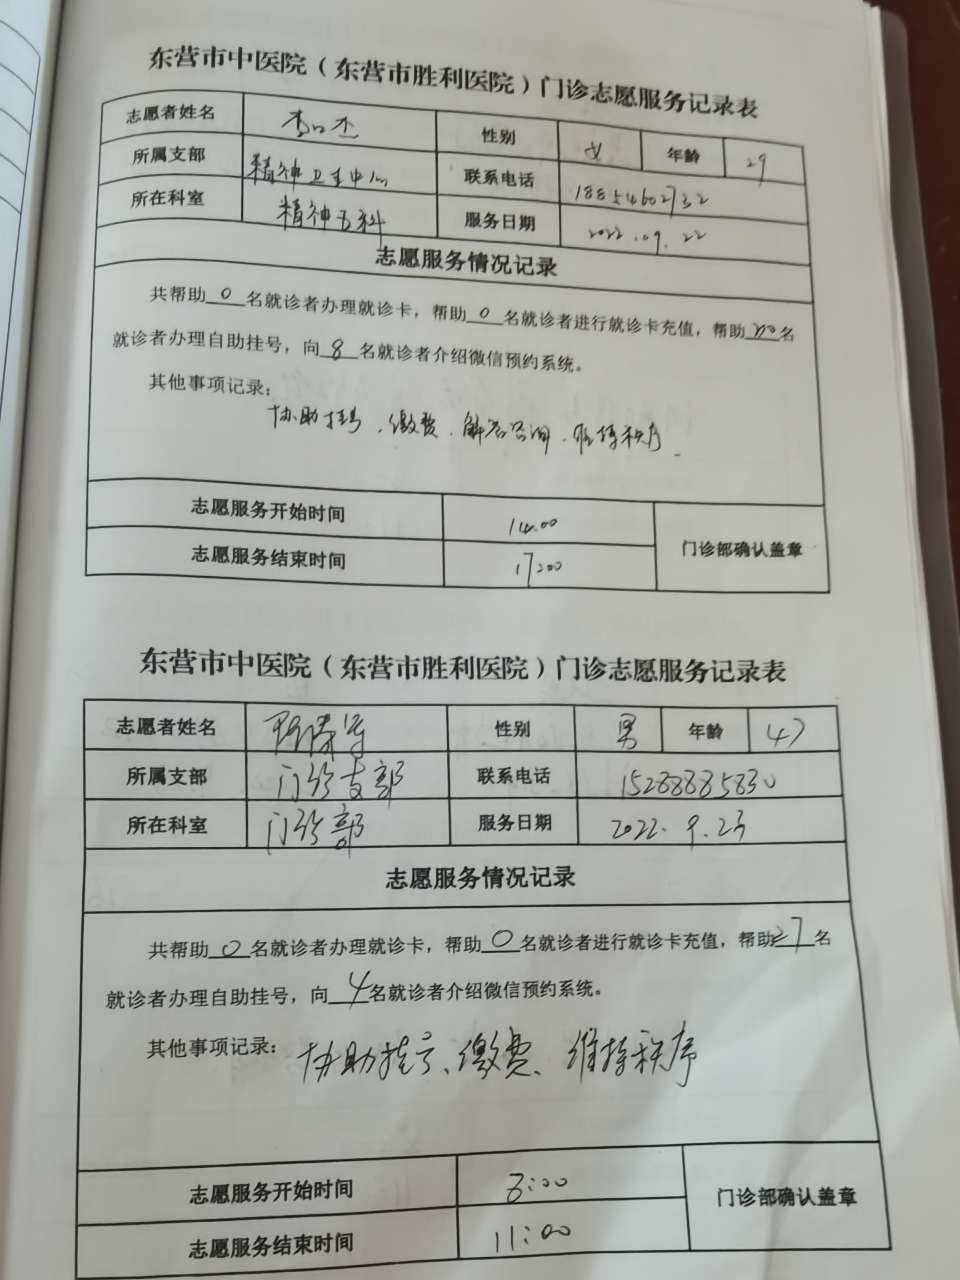 东营市中医院（东营市胜利医院）门诊志愿服务记录表
志愿者姓名 性别 女 年龄 29
所属支部 精神卫生中心 联系电话 18854602732
所在科室 精神五科 服务日期 2022.09.22
志愿服务情况记录
共帮助0名就诊者办理就诊卡，帮助0名就诊者进行就诊卡充值，帮助名
就诊者办理自助挂号，向8名就诊者介绍微信预约系统。
其他事项记录：
协助挂号、缴费、解答咨询、维持秩序。
志愿服务开始时间 14:00
门诊部确认盖章
志愿服务结束时间 17:00
东营市中医院（东营市胜利医院）门诊志愿服务记录表
志愿者姓名 性别 男 年龄 47
所属支部 门诊支部 联系电话 15288885830
所在科室 门诊部 服务日期 2022.9.23
志愿服务情况记录
共帮助0名就诊者办理就诊卡，帮助0名就诊者进行就诊卡充值，帮助27名
就诊者办理自助挂号，向4名就诊者介绍微信预约系统。
其他事项记录：协助挂号、缴费、维持秩序
志愿服务开始时间 8:00
门诊部确认盖章
志愿服务结束时间 11:00